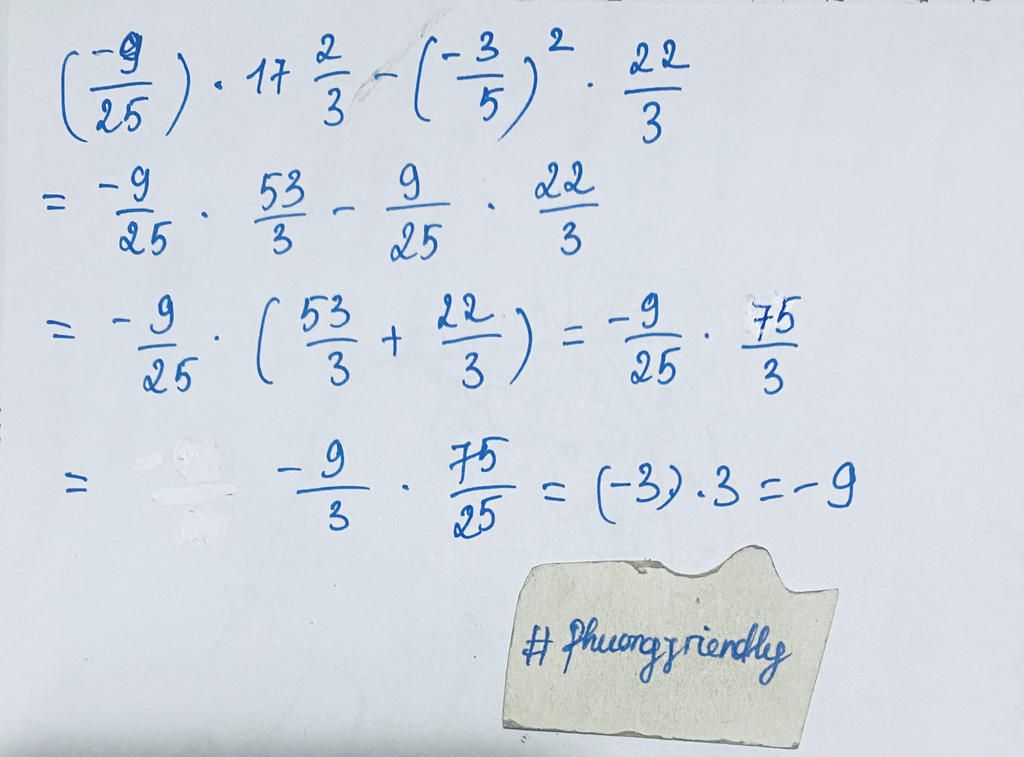 (-9/25) . 17 2/3 - (-3/5)² . 22/3
= -9/25 . 53/3 - 9/25 . 22/3
= -9/25 . (53/3 + 22/3) = -9/25 . 75/3
= -9/3 . 75/25 = (-3) . 3 = -9
# phuongfriendly